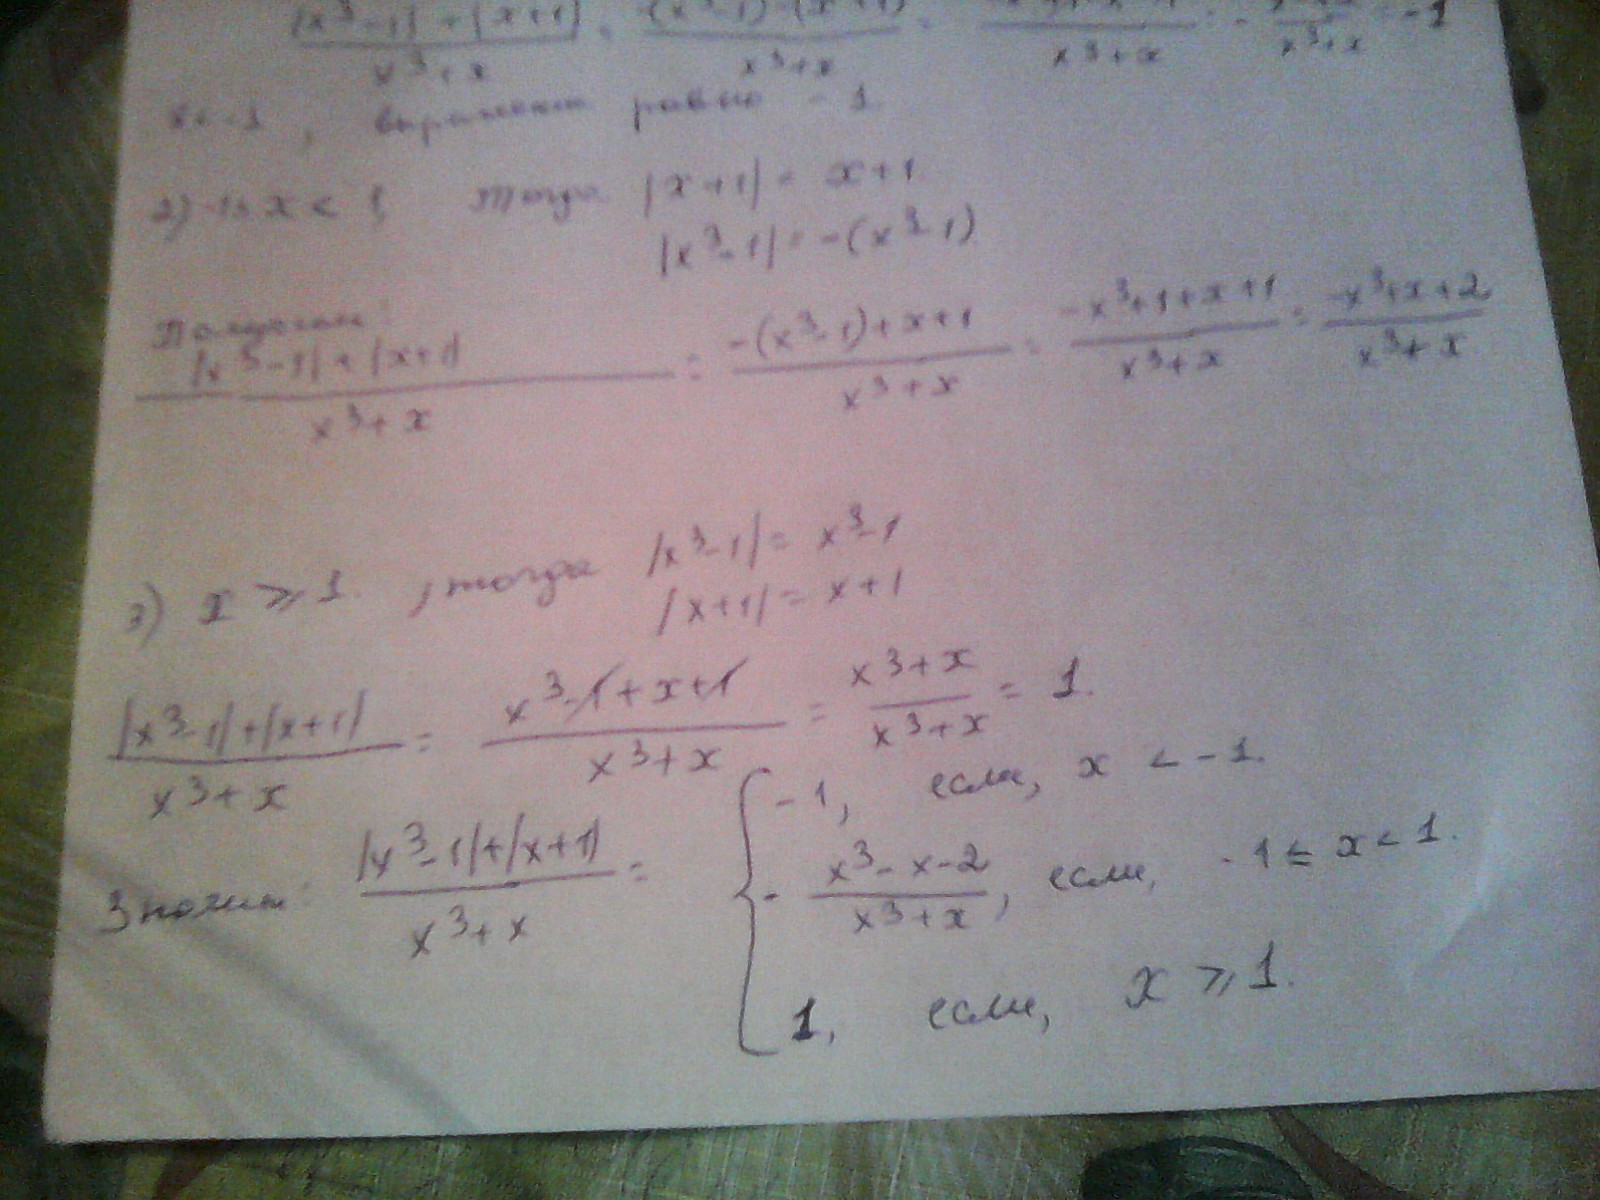 |x³-1| + |x+1| / x³+x = -(x³-1)-(x+1) / x³+x = / x³+x = - / x³+x = -1
x<-1, выражение равно -1.
2) -1≤x<1, тогда |x+1| = x+1
|x³-1| = -(x³-1)
Получаем:
|x³-1| + |x+1| / x³+x = -(x³-1)+x+1 / x³+x = -x³+1+x+1 / x³+x = -x³+x+2 / x³+x
3) x ≥ 1, тогда |x³-1| = x³-1
|x+1| = x+1
|x³-1|+|x+1| / x³+x = x³-1+x+1 / x³+x = x³+x / x³+x = 1.
Значит: |x³-1|+|x+1| / x³+x = { -1, если, x < -1.
- x³-x-2 / x³+x, если, -1 ≤ x < 1.
1, если, x ≥ 1.